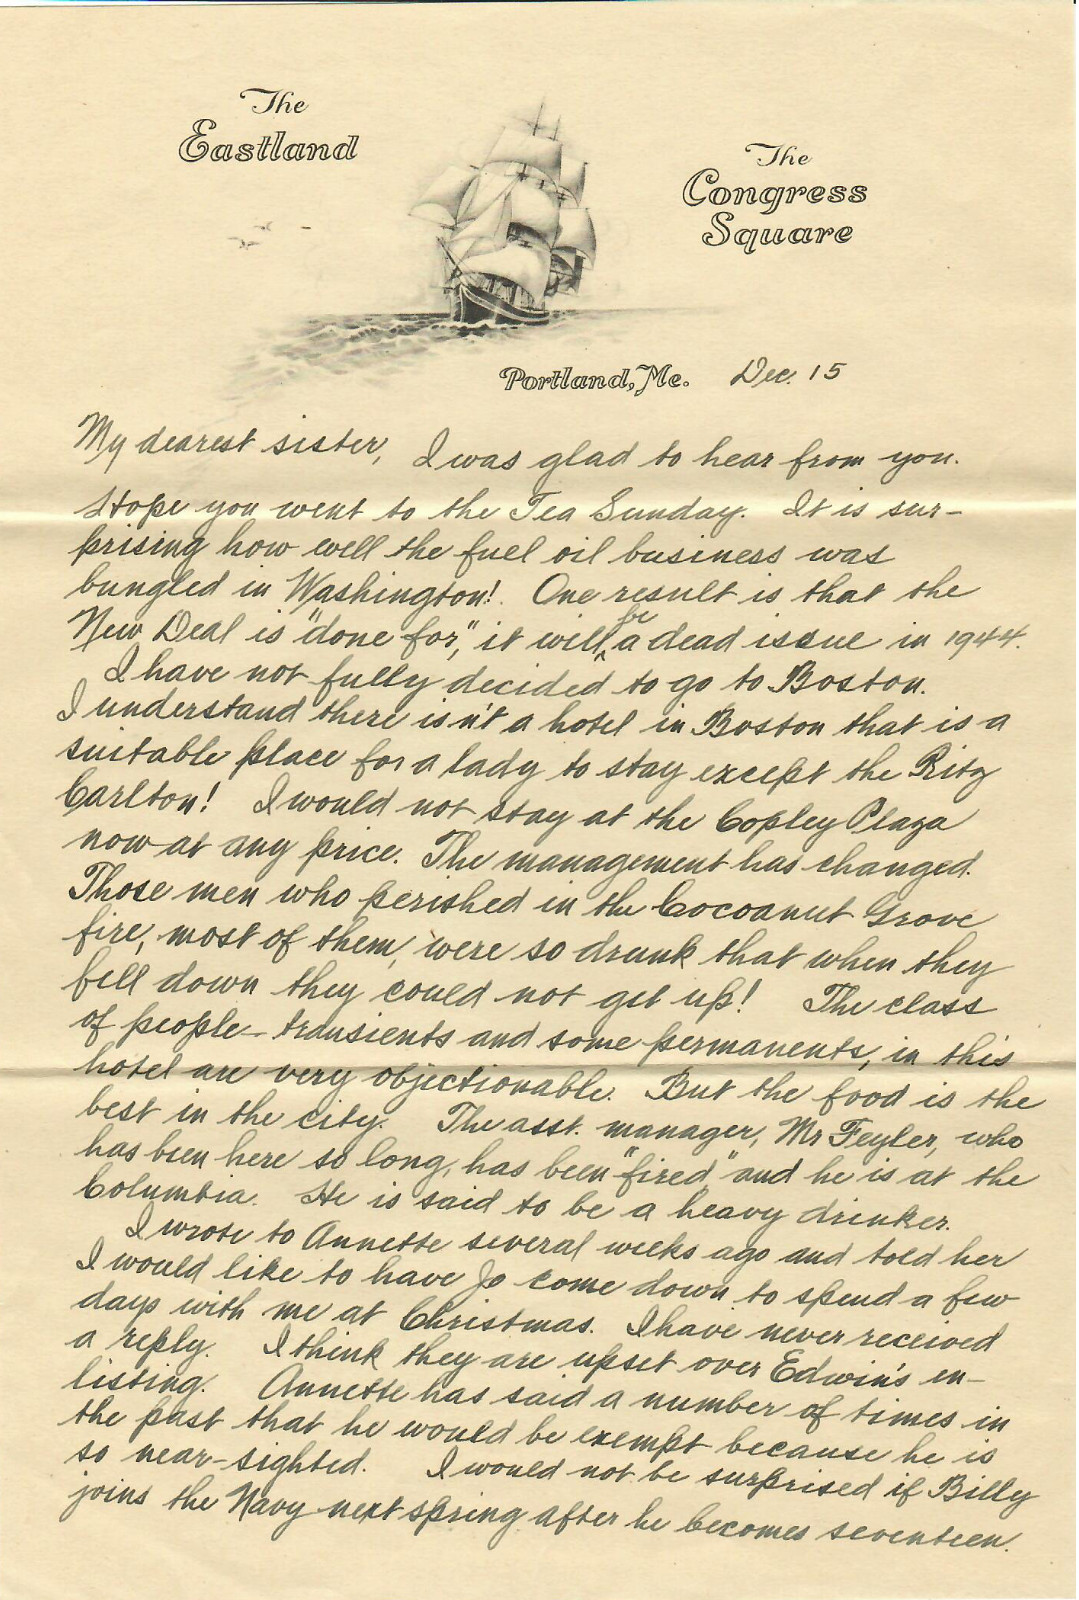 The
Eastland
The
Congress
Square
Portland, Me. Dec. 15
My dearest sister, I was glad to hear from you.
Hope you went to the Tea Sunday. It is sur-
prising how well the fuel oil business was
bungled in Washington! One result is that the
New Deal is "done for," it will be a dead issue in 1944.
I have not fully decided to go to Boston.
I understand there isn't a hotel in Boston that is a
suitable place for a lady to stay except the Ritz
Carlton! I would not stay at the Copley Plaza
now at any price. The management has changed.
Those men who perished in the Cocoanut Grove
fire, most of them, were so drunk that when they
fell down they could not get up! The class
of people - transients and some permanents, in this
hotel are very objectionable. But the food is the
best in the city. The asst. manager, Mr Feyler, who
has been here so long, has been "fired" and he is at the
Columbia. He is said to be a heavy drinker.
I wrote to Annette several weeks ago and told her
I would like to have Jo come down to spend a few
days with me at Christmas. I have never received
a reply. I think they are upset over Edwin's en-
listing. Annette has said a number of times in
the past that he would be exempt because he is
so near-sighted. I would not be surprised if Billy
joins the Navy next spring after he becomes seventeen.